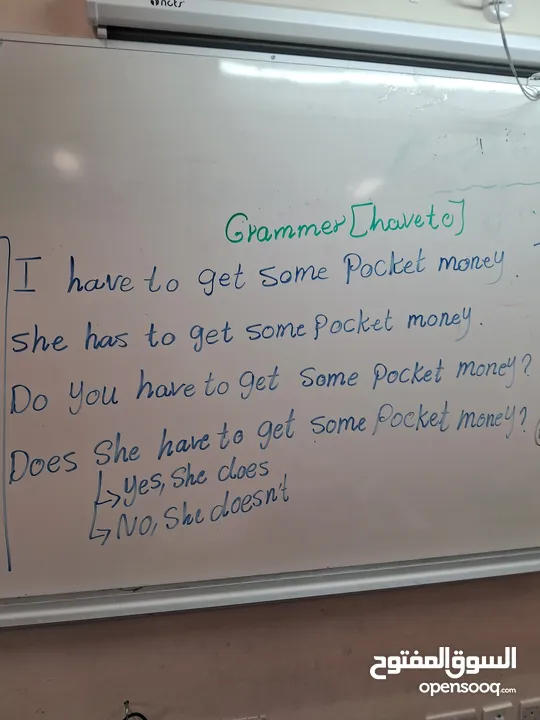 Grammer [have to]
I have to get some Pocket money.
she has to get some Pocket money.
Do you have to get some Pocket money?
Does She have to get some Pocket money?
Yes, She does
No, She doesn't
السوق المفتوح
opensooq.com